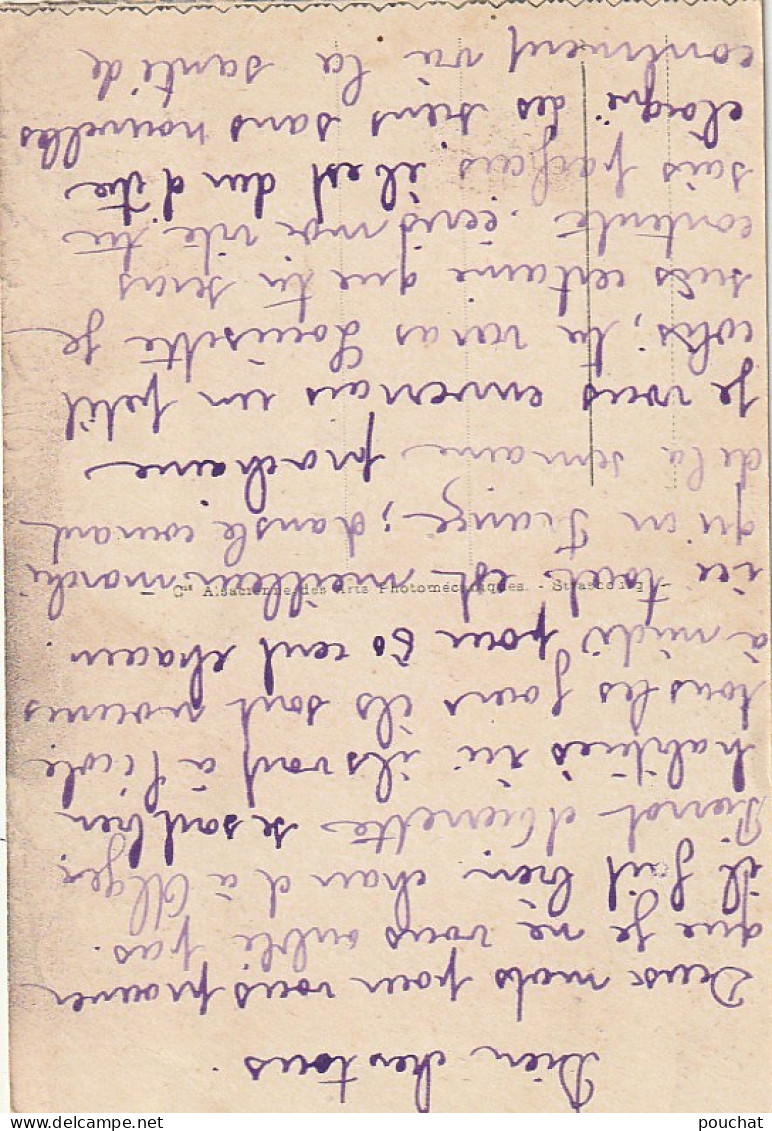 Bien chers tous.
Deux mots pour vous prouver
que je ne vous oubli pas.
il fait bien chaud à Alger,
Pierrot et Pierrette se sont bien
habitués ici ils vont à l'école
tous les jours ils sont nourris
à midi pour 60 cent chacun.
ici tout est meilleur marché
qu'en France; dans le courant
de la semaine prochaine
je vous enverrais un petit
colis; tu verras Louisette je
suis certaine que tu seras
contente. écris moi vite, tu
sais parfois il est dur d'être
eloigné des siens sans nouvelles
comment va la santé de
— Cie Alsacienne des Arts Photomécaniques. - Strasbourg —
pouchat